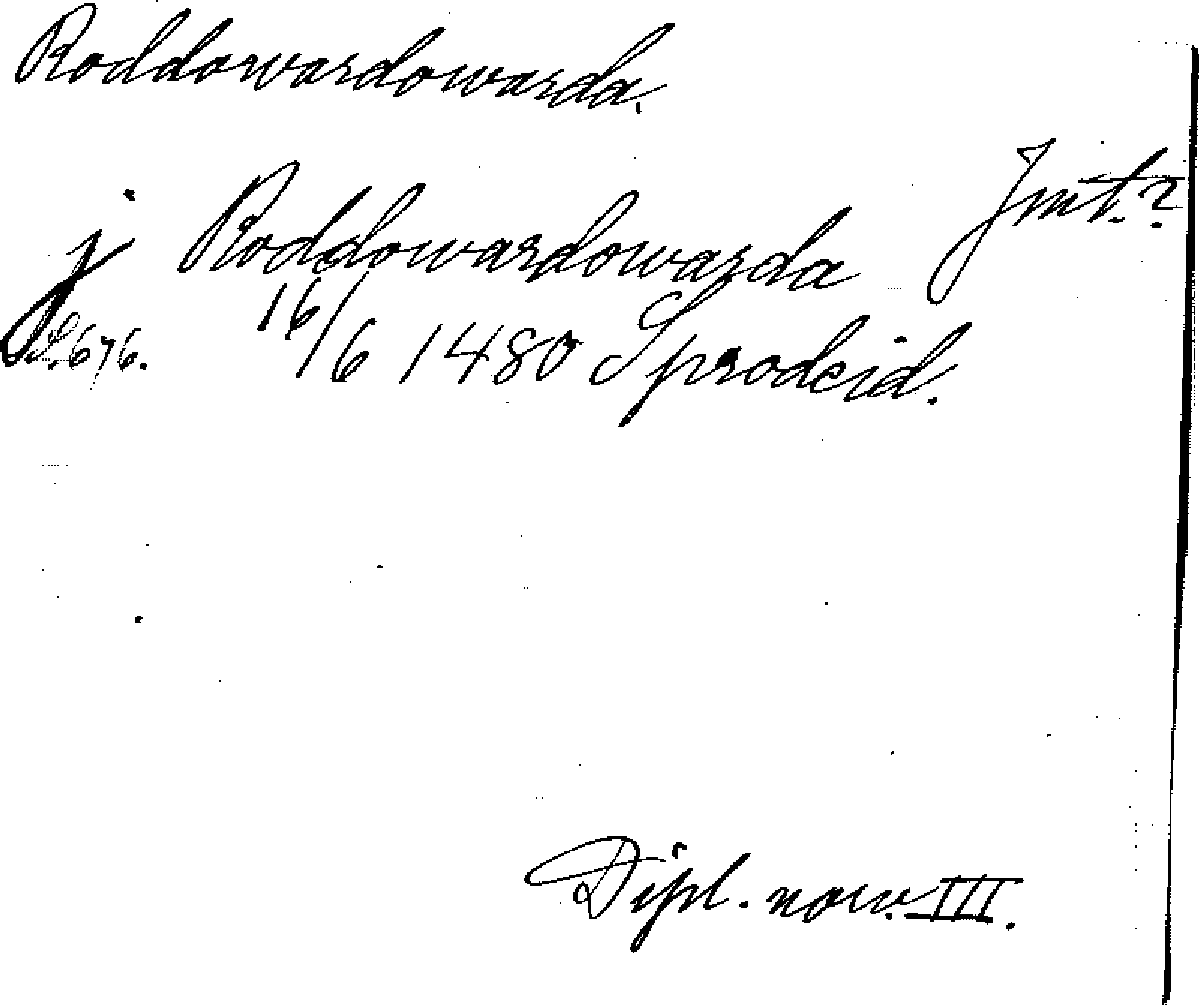 Roddowardowarda.
Jmt.?
j Roddowardowarda
S. 676. 16/6 1480 Sprodeid.
Dipl. norv. III.